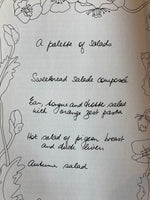 A palette of salads
Sweetbread salade composée
Ear, tongue and chorizo salad
with orange zest pasta
Hot salad of pigeon breast
and duck livers
Autumn salad